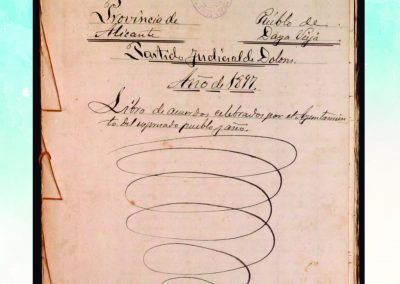 Provincia de Pueblo de
Alicante Daya Vieja
Partido Judicial de Dolores.
Año de 1897.
Libro de acuerdos celebrados por el Ayuntamien-
to del expresado pueblo y año.